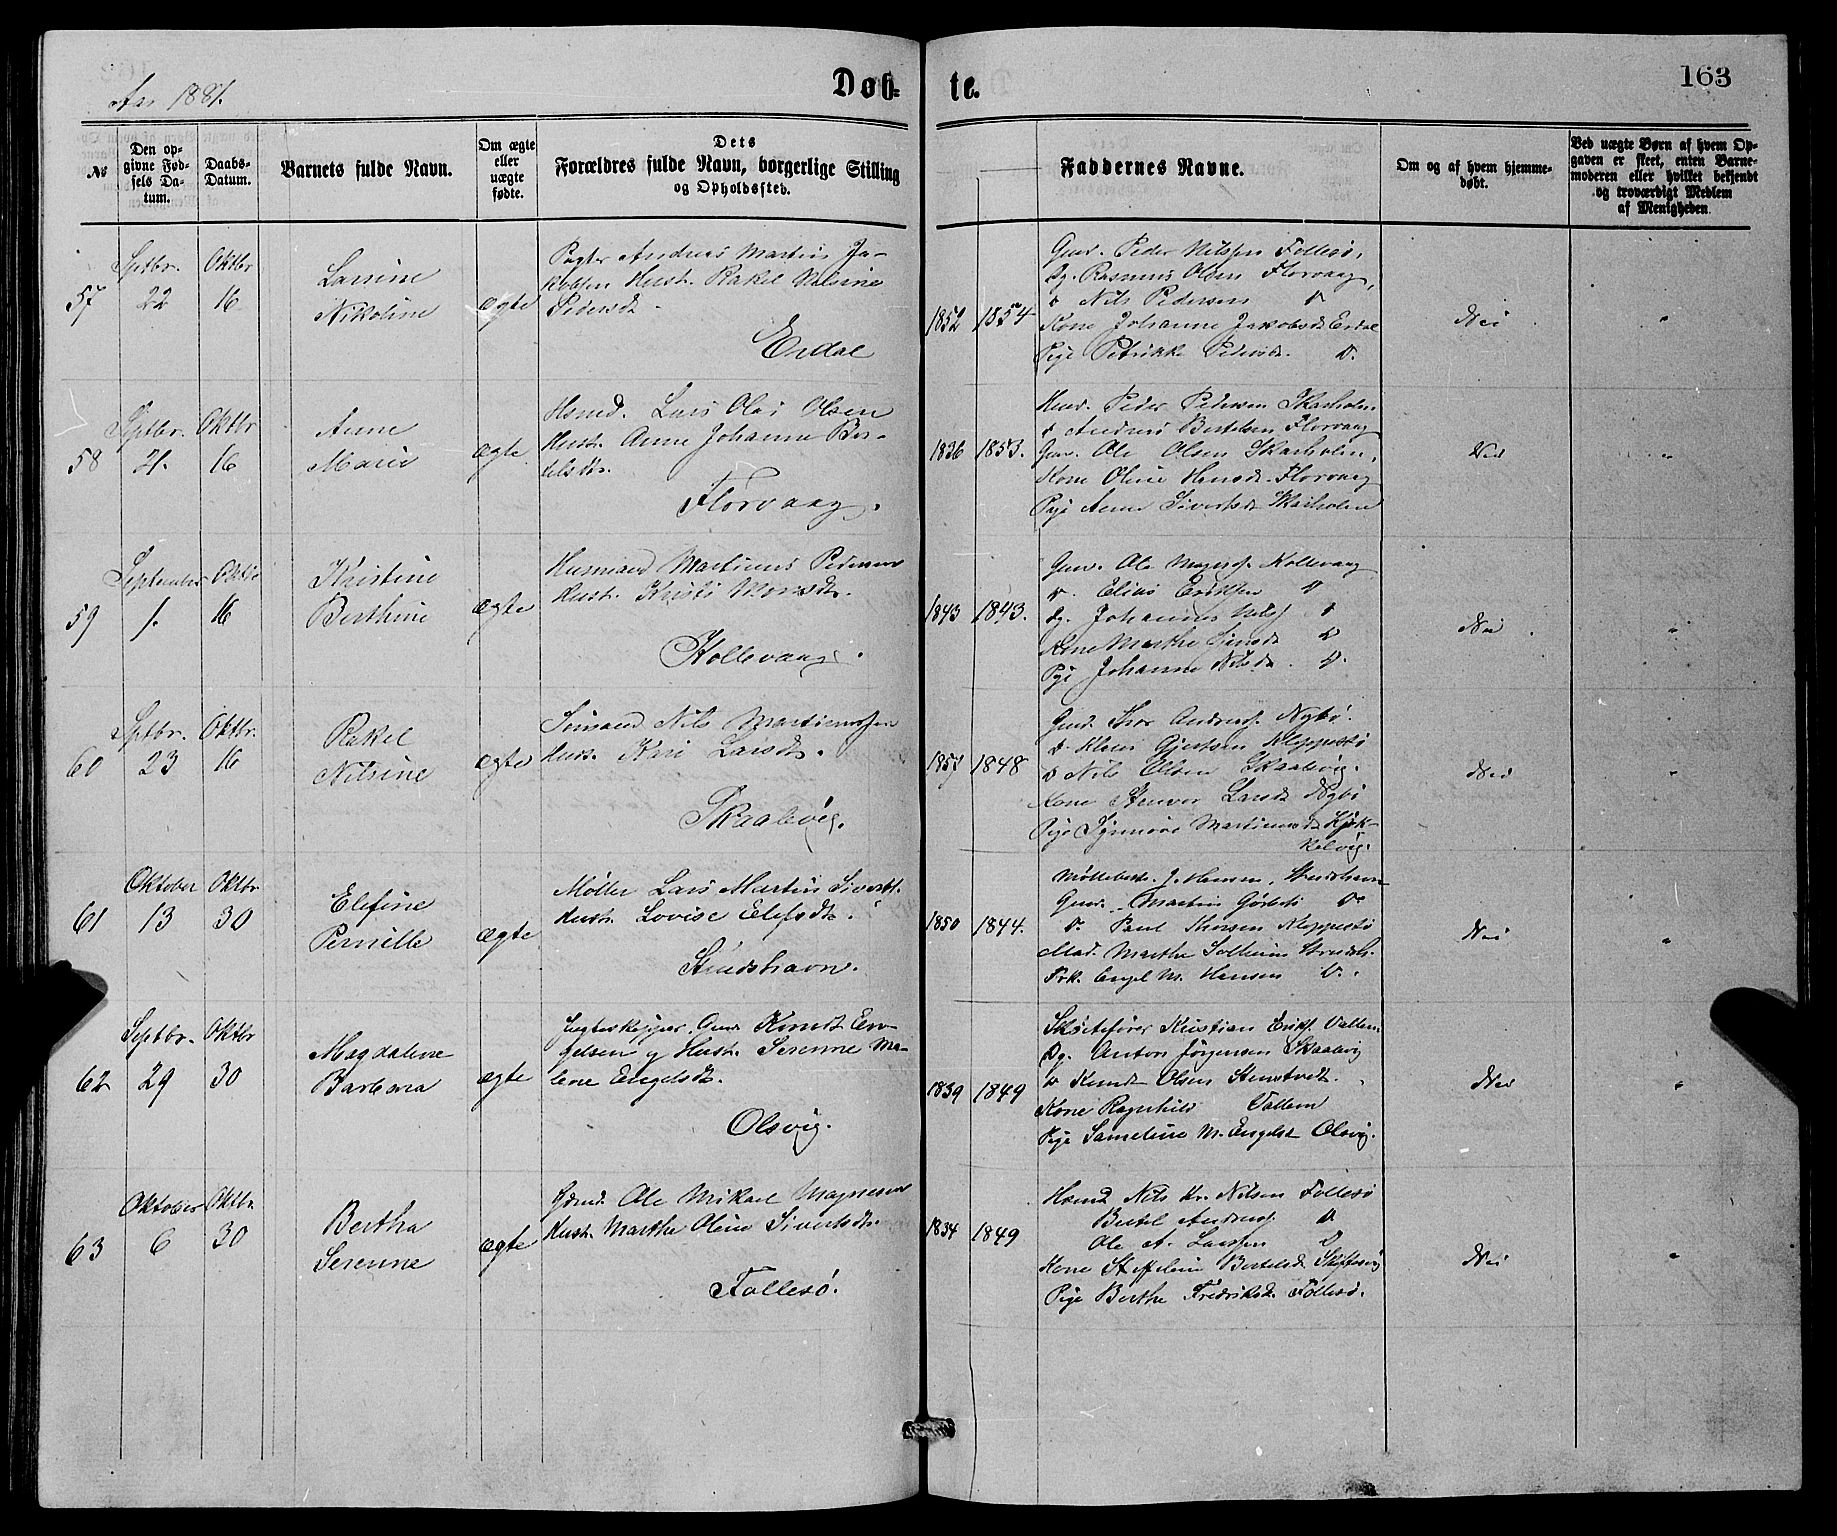 Aar 1881.
Døb-
te.
163
№
Den op-
givne Fød-
sels Da-
tum.
Daabs-
Datum.
Barnets fulde Navn.
Om ægte
eller
uægte
fødte.
Dets
Forældres fulde Navn, borgerlige Stilling
og Opholdssted.
Faddernes Navne.
Om og af hvem hjemme-
døbt.
Ved uægte Børn af hvem Op-
gaven er skeet, enten Barne-
moderen eller hvilket bekjendt
og troværdigt Medlem
af Menigheden.
57
Sptbr.
22
Oktbr
16
Larsine
Nikoline
ægte
Andreas Martin Ja-
kobsen Hust. Rakel Nilsine
Pedersdt
Erdal
1852 1854
Gmd. Peder Nilssen Follesø,
Dg. Rasmus Olsen Florvaag,
Nils Pedersen
Kone Johanne Jakobsdt Erdal
Pige Petrikke Pedersdt.
Nei
58
Sptbr.
21.
Oktbr
16
Anne
Marie
ægte
Hsmd. Lars Olai Olsen
Hust. Anne Johanne Ber-
telsdt.
Florvaag.
1836 1853.
Hmd. Peder Pedersen Skarholm
Andreas Bertelsen Florvaag
Gm. Ole Olsen Skarholm,
Kone Oline Hansdt. Florvaag
Pige Anne Sivertsdt Skarholm
Nei
59
September
1.
Oktbr
16
Kristine
Berthine
ægte
Husmand Martinus Pedersen
Hust. Kristi Monsdt.
Kollevaag.
1843 1843.
Gmd. Ole Kollevaag
Elias Eriksen
Dg. Johannes Nils
Kone Marthe
Pige Johanne Nilsdt.
Nei
60
Sptbr.
23
Oktbr.
16
Rakel
Nilsine
ægte
Nils Martinussen
Hust. Kari Larsdt.
Skaalevig.
1848
Gmd. Thor Andreas Nybø.
Gjertsen Kleppestø
Nils Olsen Skaalevig.
Kone Larsdt Nybø
Pige Synnøve Martinusdt Kjøk-
kelvig.
Nei
61
Oktober
13
Oktbr
30
Elefine
Pernille
ægte
Møller Lars Martin Sivert.
Hust. Lovise Elefsdt.
Strudshavn.
1850 1844.
Møllebest. J. Hansen, Strudshavn
Gmd. Martin
Paul Thorsen Kleppestø
Mad. Marthe Solheim Strudsh.
Frk. Engel M. Hansen
Nei
62
Septbr.
29
Oktbr
30
Magdalene
Barbara
ægte
Jægteskipper, Knudt En-
gelsen og Hust. Serenne Ma-
lene Engelsdt.
Olsvig.
1839 1849
Skøitefører Kristian Eriks. Vallem
Dg. Anton Jørgensen Skaalevig
Knudt Olsen
Kone Ragnhild Vallem
Pige Sameline M. Engelsdt Olsvig.
Nei
63
Oktober
6
Oktbr
30
Bertha
Serenne
ægte
Ole Mikael Magnesen
Hust. Marthe Oline Sivertsdt.
Follesø.
1834 1849
Hsmd Nils Kr. Nilsen Follesø
Bertel Andreas
Ole A. Larssen
Kone Bertelsdt
Pige Berthe Fredriksdt. Follesø.
Nei